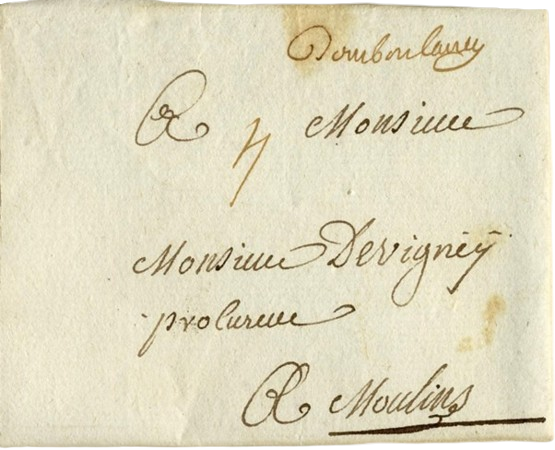 Bourbonlancy
A 4 Monsieur
Monsieur Devigney
procureur
A Moulins